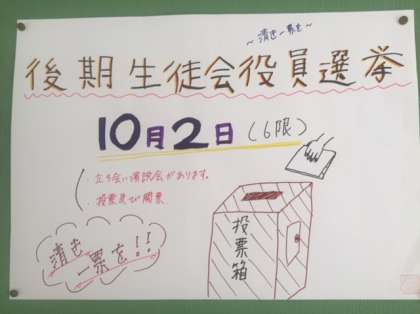 ～清き一票を～
後期生徒会役員選挙
10月2日（6限）
立ち会い演説会があります。
投票及び開票
清き
一票を!!
投票箱